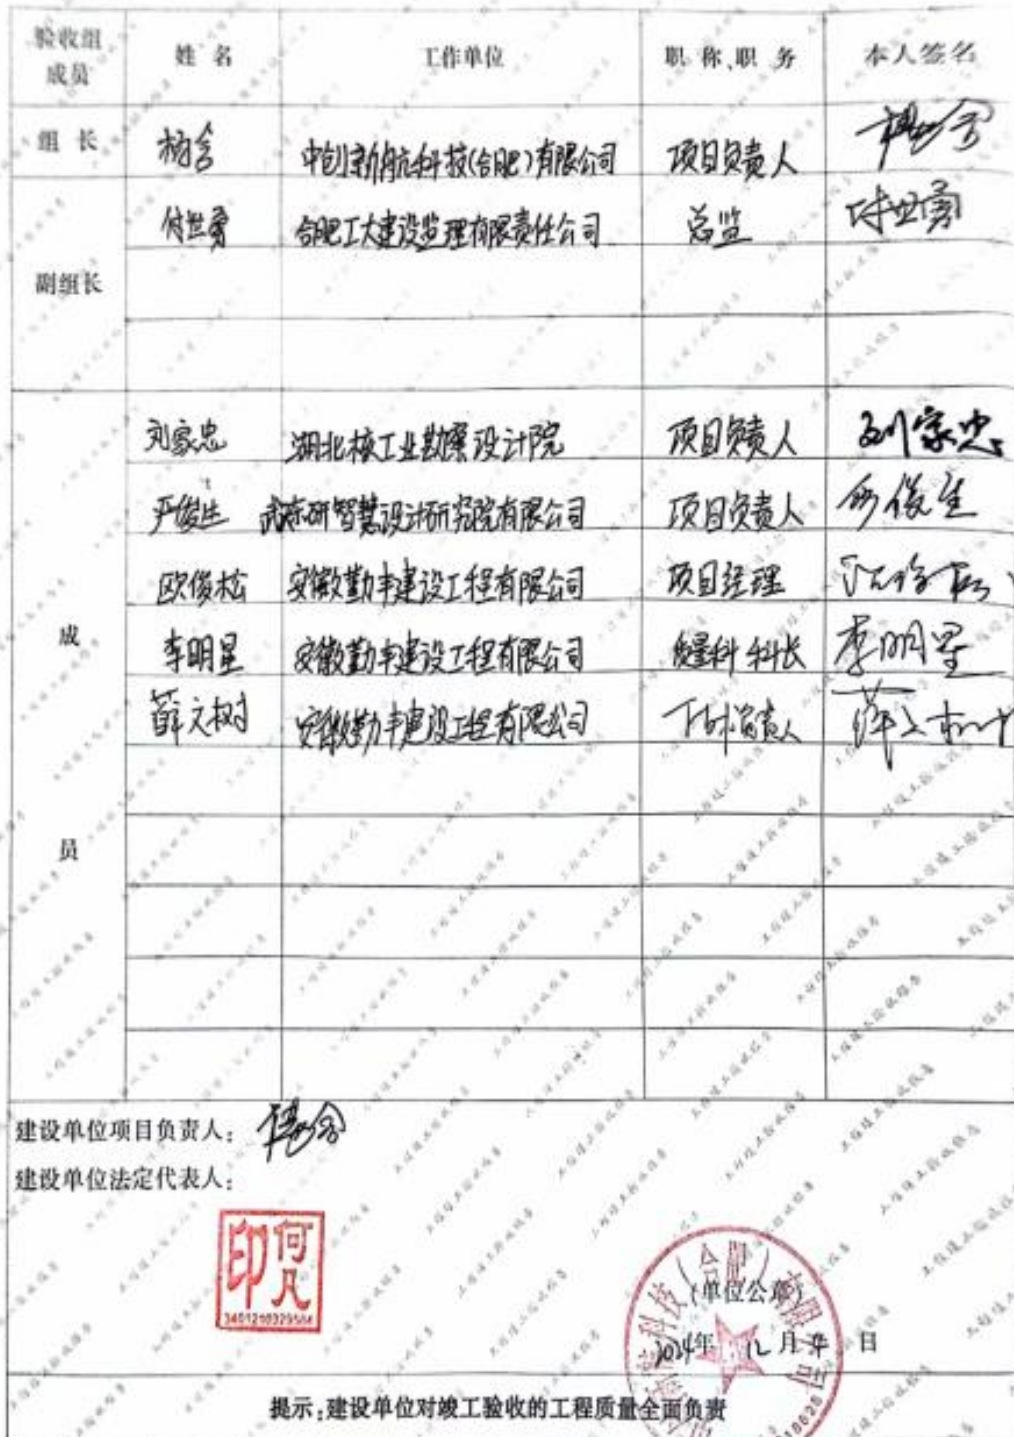 验收组成员 姓 名 工作单位 职 称、职 务 本人签名
组 长 杨会 中创新航科技(合肥)有限公司 项目负责人 杨会
付世勇 合肥工大建设监理有限责任公司 总监 付世勇
副组长
刘家忠 湖北核工业勘察设计院 项目负责人 刘家忠
严俊生 研智慧设计研究院有限公司 项目负责人 严俊生
欧俊松 安徽勤丰建设工程有限公司 项目经理
成 李明星 安徽勤丰建设工程有限公司 质量科 科长 李明星
薛文树 安徽勤丰建设工程有限公司 负责人 薛文树
员
建设单位项目负责人: 杨会
建设单位法定代表人:
何凡印
(单位公章)
2024年 12月 日
提示:建设单位对竣工验收的工程质量全面负责